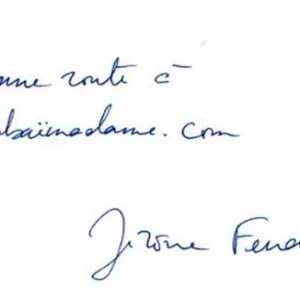 nne route à
baïmadame.com
Jérôme Ferra